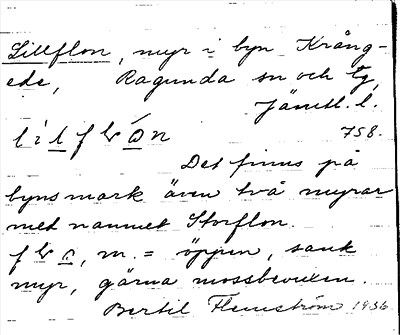 Lillflon, myr i byn Krång-
ede, Ragunda sn och tg,
Jämtl. l.
lilflon 758.
Det finns på
byns mark även två myrar
med namnet Storflon.
flo, m. = öppen, sank
myr, gärna mossbevuxen.
Bertil Flemström 1936